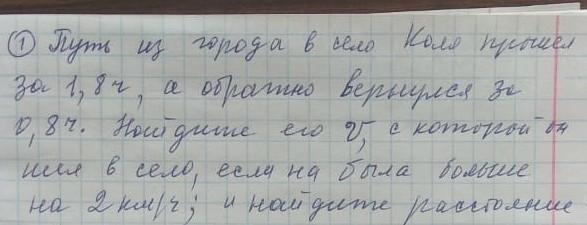 ① Путь из города в село Коля прошел
за 1,8 ч, а обратно вернулся за
0,8ч. Найдите его V, с которой он
шел в село, если на была больше
на 2 км/ч; и найдите расстояние